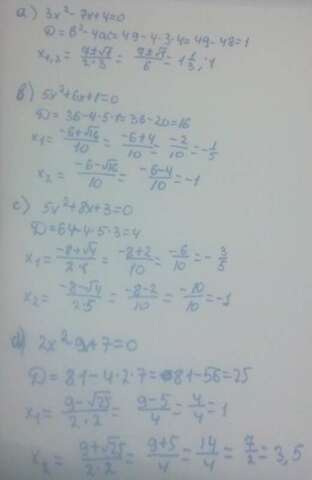 a) 3x² - 7x+4=0
D = b² - 4ac = 49 - 4·3·4 = 49 - 48 = 1
x₁,₂ = (7±√1)/(2·3) = (7±√1)/6 = 1 1/3; 1
b) 5x²+6x+1=0
D = 36-4·5·1=36-20=16
x₁ = (-6+√16)/10 = (-6+4)/10 = -2/10 = -1/5
x₂ = (-6-√16)/10 = (-6-4)/10 = -1
c) 5x²+8x+3=0
D=64-4·5·3=4
x₁ = (-8+√4)/(2·5) = (-8+2)/10 = -6/10 = -3/5
x₂ = (-8-√4)/(2·5) = (-8-2)/10 = -10/10 = -1
d) 2x² 9+7=0
D = 81-4·2·7= 81-56=25
x₁ = (9-√25)/(2·2) = (9-5)/4 = 4/4 = 1
x₂ = (9+√25)/(2·2) = (9+5)/4 = 14/4 = 7/2 = 3,5